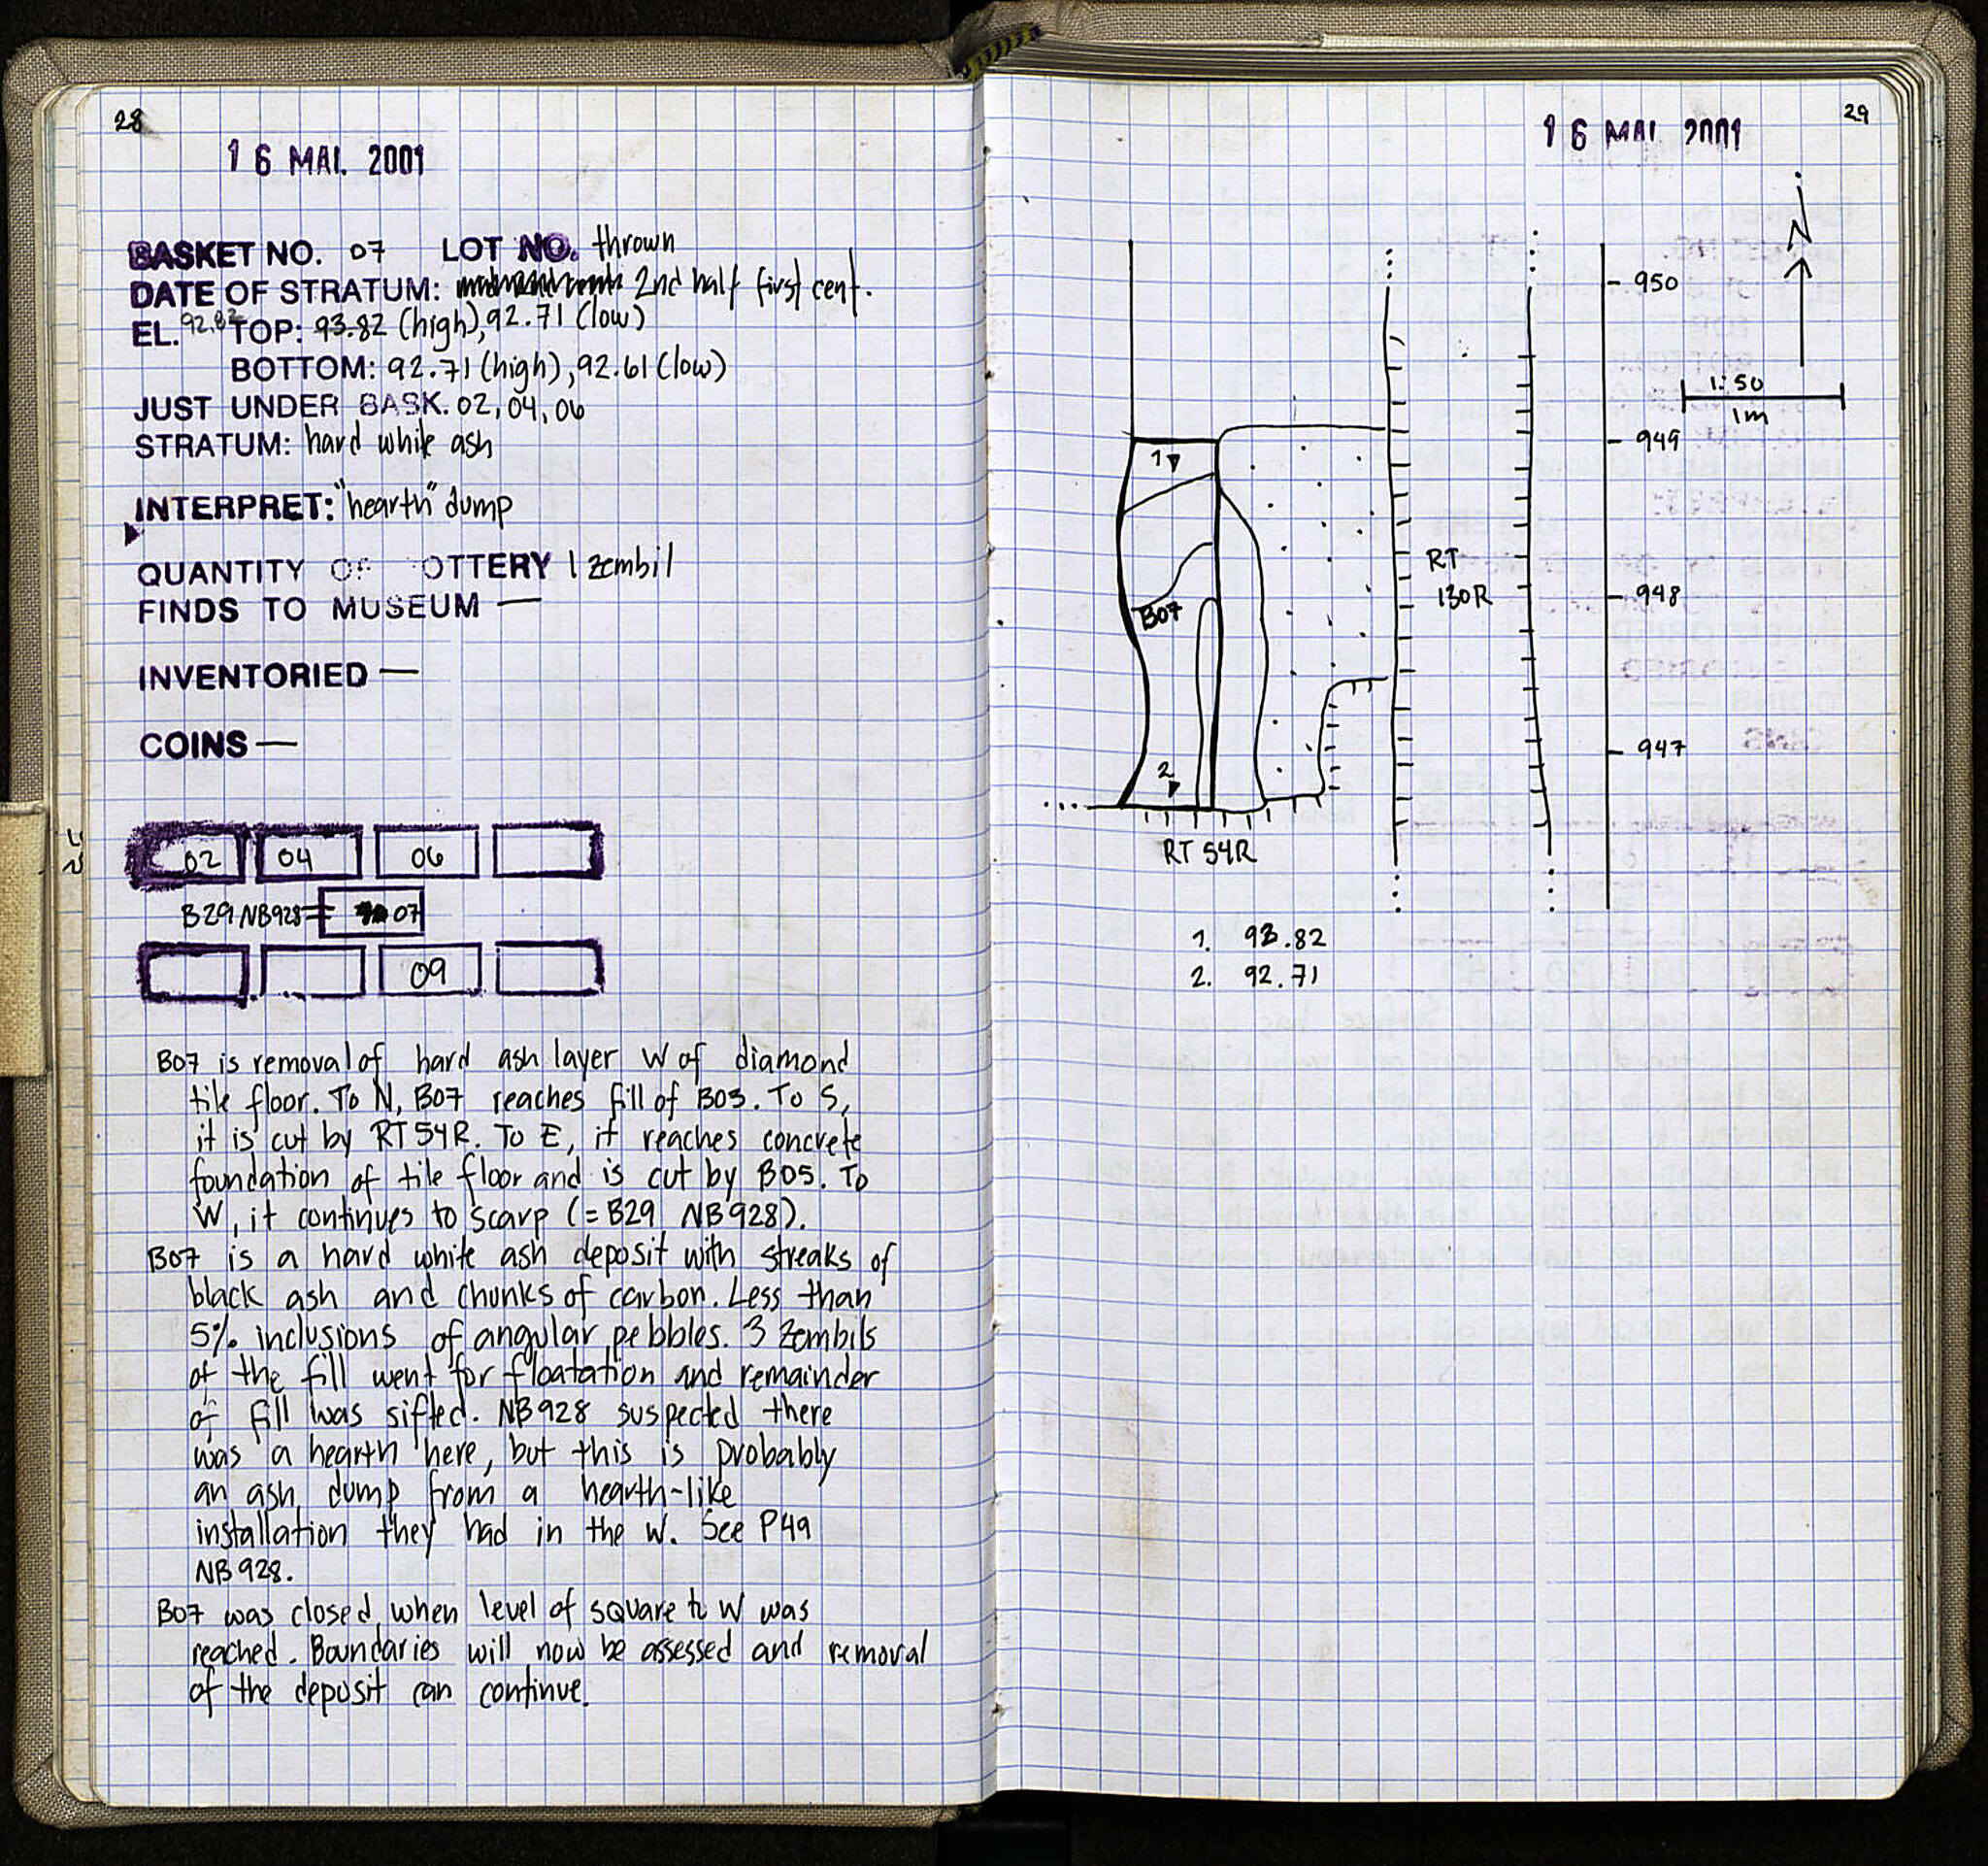 28
16 MAI. 2001
BASKET NO. 07 LOT NO. thrown
DATE OF STRATUM: 2nd half first cent.
92.82
EL. TOP: 93.82 (high), 92.71 (low)
BOTTOM: 92.71 (high), 92.61 (low)
JUST UNDER BASK. 02, 04, 06
STRATUM: hard white ash
INTERPRET: "hearth" dump
QUANTITY OF POTTERY 1 zembil
FINDS TO MUSEUM —
INVENTORIED —
COINS —
02 04 06
B29 NB928 = 07
09
B07 is removal of hard ash layer W of diamond
tile floor. To N, B07 reaches fill of B03. To S,
it is cut by RT 54R. To E, it reaches concrete
foundation of tile floor and is cut by B05. To
W, it continues to scarp (= B29 NB928).
B07 is a hard white ash deposit with streaks of
black ash and chunks of carbon. Less than
5% inclusions of angular pebbles. 3 zembils
of the fill went for floatation and remainder
of fill was sifted. NB928 suspected there
was a hearth here, but this is probably
an ash dump from a hearth-like
installation they had in the W. See P49
NB928.
B07 was closed when level of square to W was
reached. Boundaries will now be assessed and removal
of the deposit can continue.
29
16 MAI. 2001
N
950
1:50
1m
949
1
RT
130R
948
B07
947
2
RT 54R
1. 93.82
2. 92.71